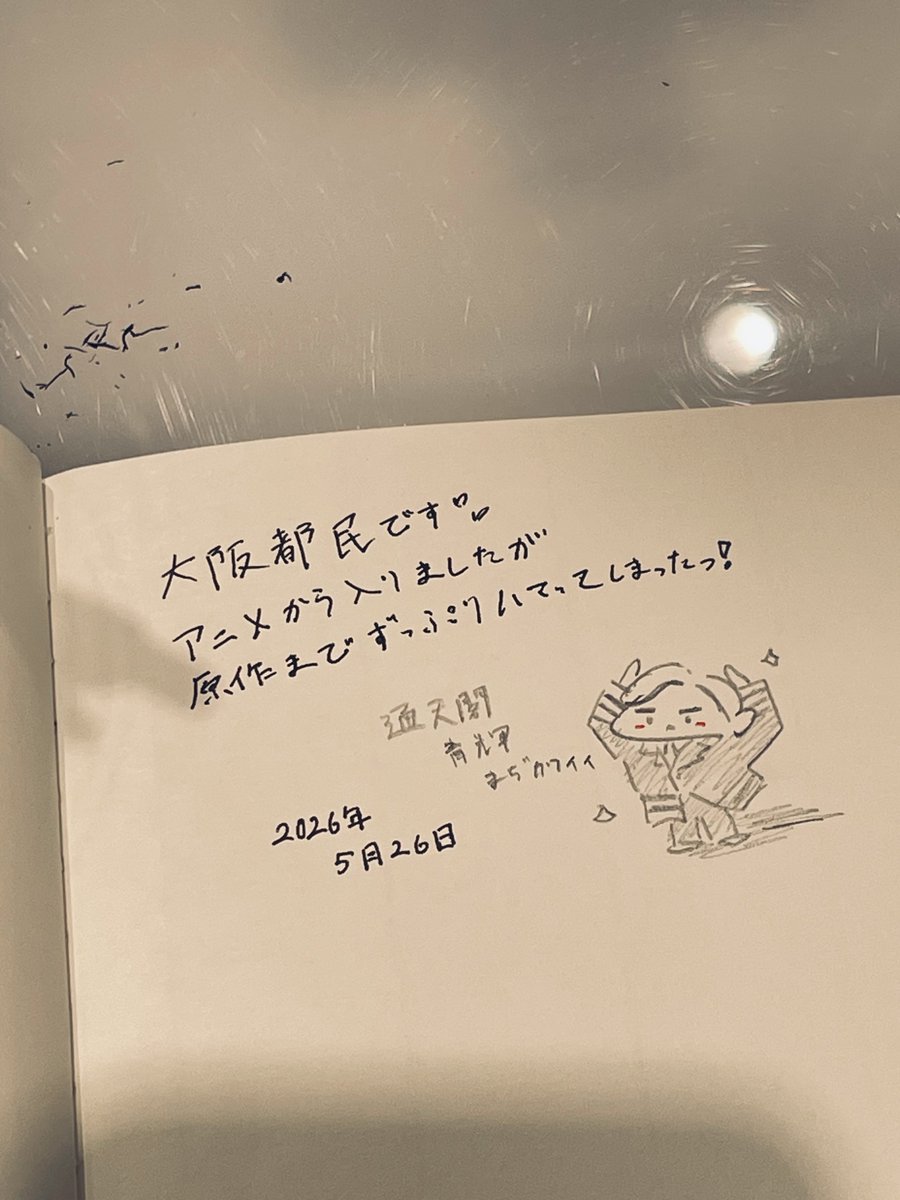 大阪都民です
アニメから入りましたが
原作までずっぷりハマってしまったっ!
通天閣
青輝
まぢカワイイ
2026年
5月26日